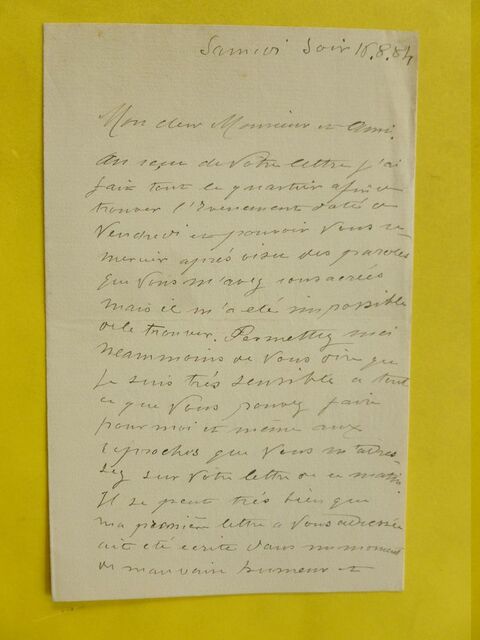 Samedi Soir 16.8.84
Mon cher Monsieur et Ami.
Au reçue de Votre lettre j'ai
fait tout le quartier afin de
trouver l'Evenement daté de
Vendredi et pouvoir Vous re-
mercier après visu des paroles
que Vous m'avez consacrées
mais il m'a été impossible
de le trouver. Permettez moi
neammoins de Vous dire que
je suis très sensible a tout
ce que Vous pouvez faire
pour moi et meme aux
reproches que Vous m'adres-
sez sur Votre lettre de ce matin
Il se peut très bien que
ma première lettre a Vous adressée
ait été écrite dans un moment
de mauvaise humeur et